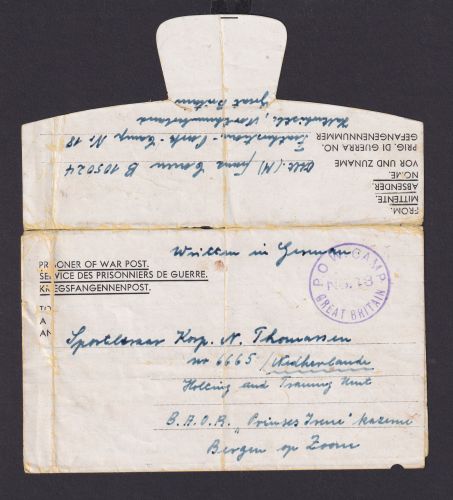 Great Britain
Featherstone-Park-Camp Nr 18
B 105024
FROM.
MITTENTE.
ABSENDER.
NOME.
VOR UND ZUNAME
PRIG. DI GUERRA NO.
GEFANGENNENNUMMER
Written in German
PRISONER OF WAR POST.
SERVICE DES PRISONNIERS DE GUERRE.
KRIEGSFANGENNENPOST.
P.O.W. CAMP
No. 18
GREAT BRITAIN
TO
A
AN
Korp. N. Thomassen
nr 6665 / Nedherlande
Holding and Training Unit
B.A.O.R. "Prinses Irene" kazerne
Bergen op Zoom